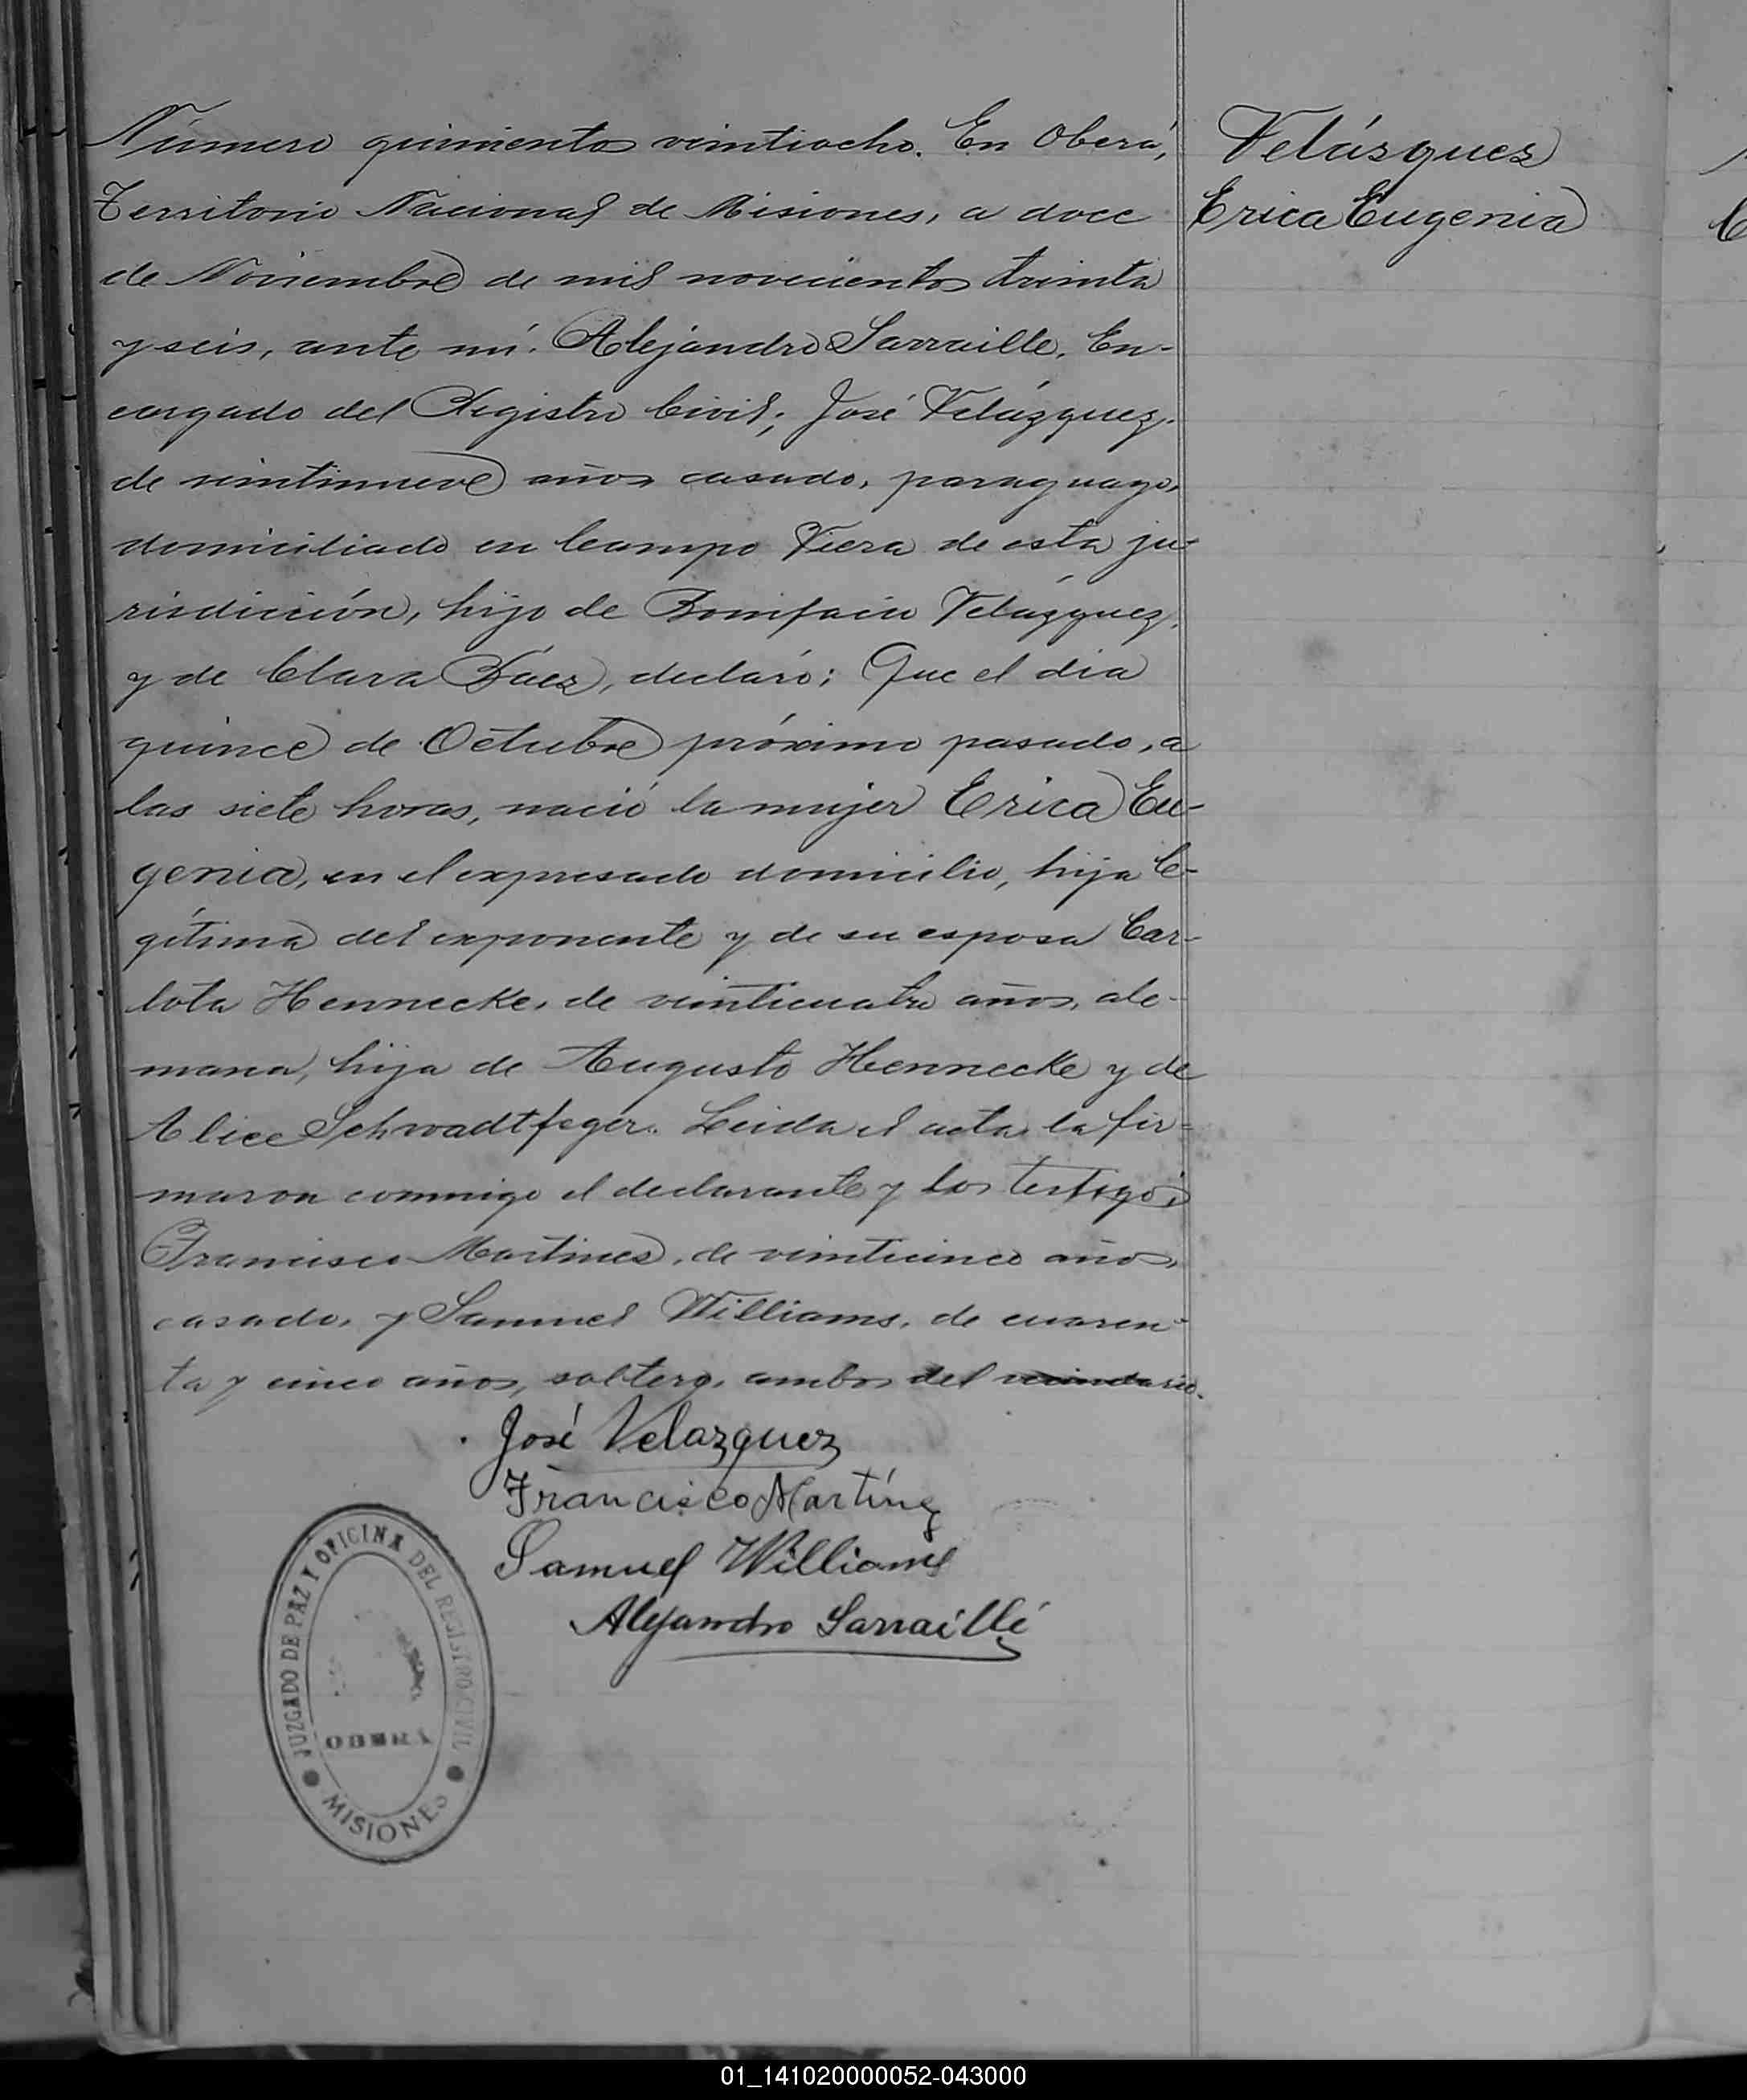 Número quinientos veintiocho. En Oberá,
Territorio Nacional de Misiones, a doce
de Noviembre de mil novecientos treinta
y seis, ante mí. Alejandro Sarraille, En-
cargado del Registro Civil; José Velázquez,
de veintinueve años casado, paraguayo,
domiciliado en Campo Viera de esta ju-
risdicción, hijo de Bonifacio Velázquez,
y de Clara Báez, declaró: Que el día
quince de Octubre próximo pasado, a
las siete horas, nació la mujer Erica Eu-
genia, en el expresado domicilio, hija le-
gítima del exponente y de su esposa Car-
lota Hennecke, de veinticuatro años, ale-
mana, hija de Augusto Hennecke y de
Alice Schwadtfeger. Leida el acta, la fir-
maron conmigo el declarante y los testigos
Francisco Martines, de veinticinco años,
casado, y Samuel Williams, de cuaren-
ta y cinco años, soltero, ambos del vecindario.
José Velazquez
Francisco Martínez
Samuel Williams
Alejandro Sarraillé
Velásques
Erica Eugenia
JUZGADO DE PAZ Y OFICINA DEL REGISTRO CIVIL
OBERA
MISIONES
01_141020000052-043000